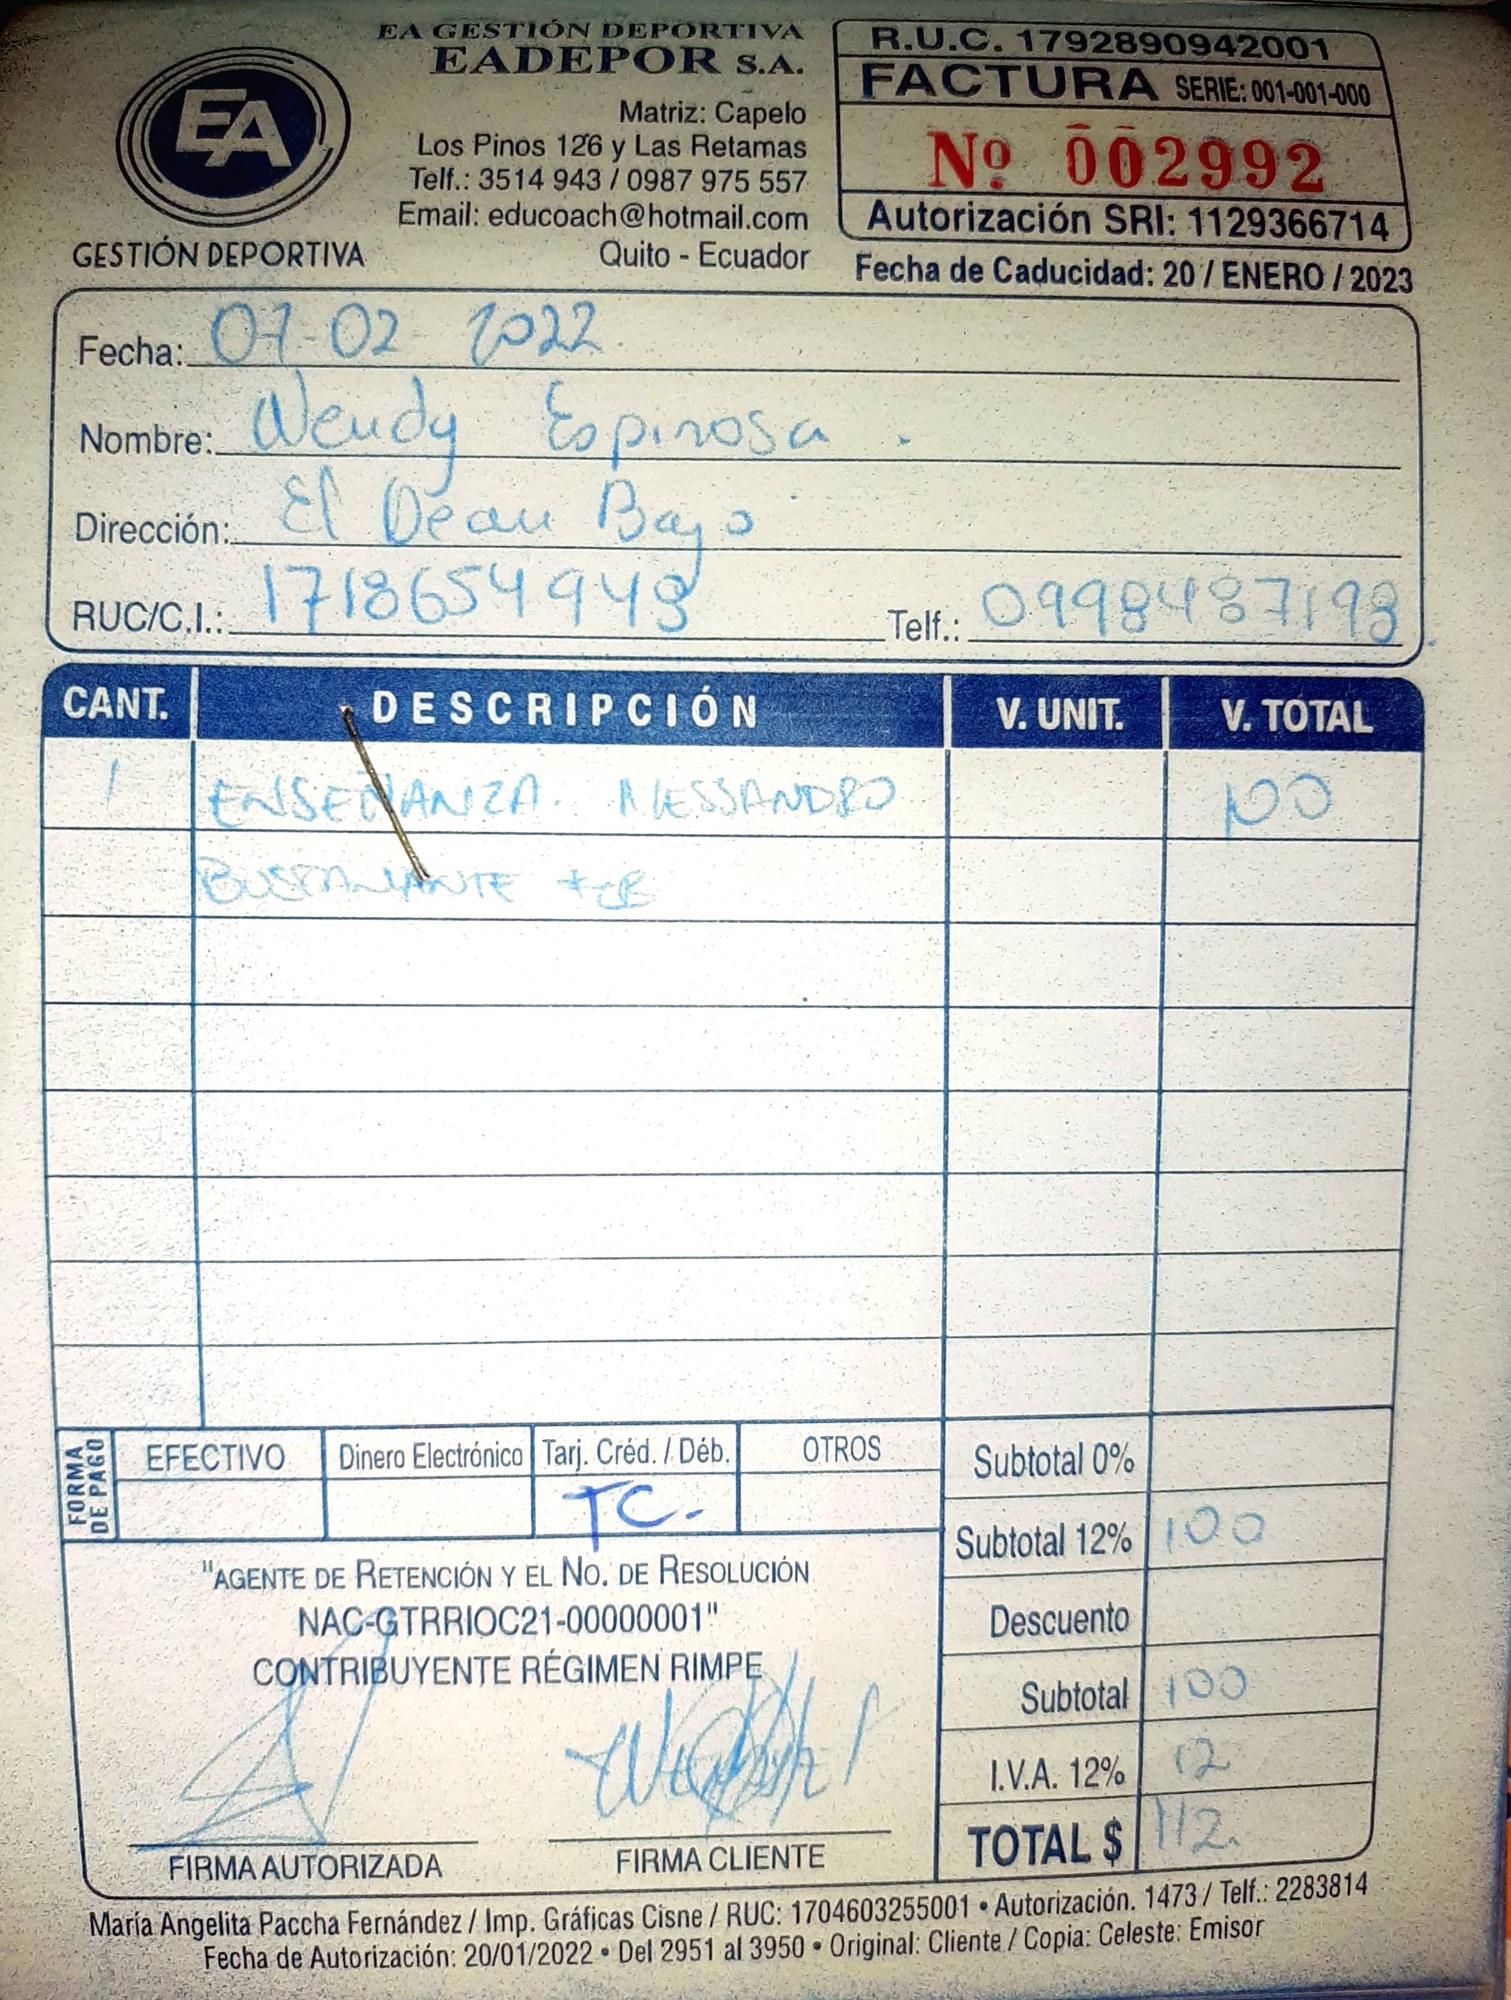 EA GESTIÓN DEPORTIVA
EADEPOR S.A.
EA
GESTIÓN DEPORTIVA
Matriz: Capelo
Los Pinos 126 y Las Retamas
Telf.: 3514 943 / 0987 975 557
Email: educoach@hotmail.com
Quito - Ecuador
R.U.C. 1792890942001
FACTURA SERIE: 001-001-000
Nº 002992
Autorización SRI: 1129366714
Fecha de Caducidad: 20 / ENERO / 2023
Fecha: 07-02 2022
Nombre: Wendy Espinosa.
Dirección: El Dean Bajo
RUC/C.I.: 1718654943 Telf.: 0998487193
CANT. DESCRIPCIÓN V. UNIT. V. TOTAL
1 ENSEÑANZA. ALESSANDRO 100
BUSTAMANTE
FORMA DE PAGO EFECTIVO Dinero Electrónico Tarj. Créd. / Déb. OTROS
TC.
Subtotal 0%
Subtotal 12% 100
Descuento
Subtotal 100
I.V.A. 12% 12
TOTAL $ 112.
"AGENTE DE RETENCIÓN Y EL NO. DE RESOLUCIÓN
NAC-GTRRIOC21-00000001"
CONTRIBUYENTE RÉGIMEN RIMPE
FIRMA AUTORIZADA FIRMA CLIENTE
María Angelita Paccha Fernández / Imp. Gráficas Cisne / RUC: 1704603255001 • Autorización. 1473 / Telf.: 2283814
Fecha de Autorización: 20/01/2022 • Del 2951 al 3950 • Original: Cliente / Copia: Celeste: Emisor